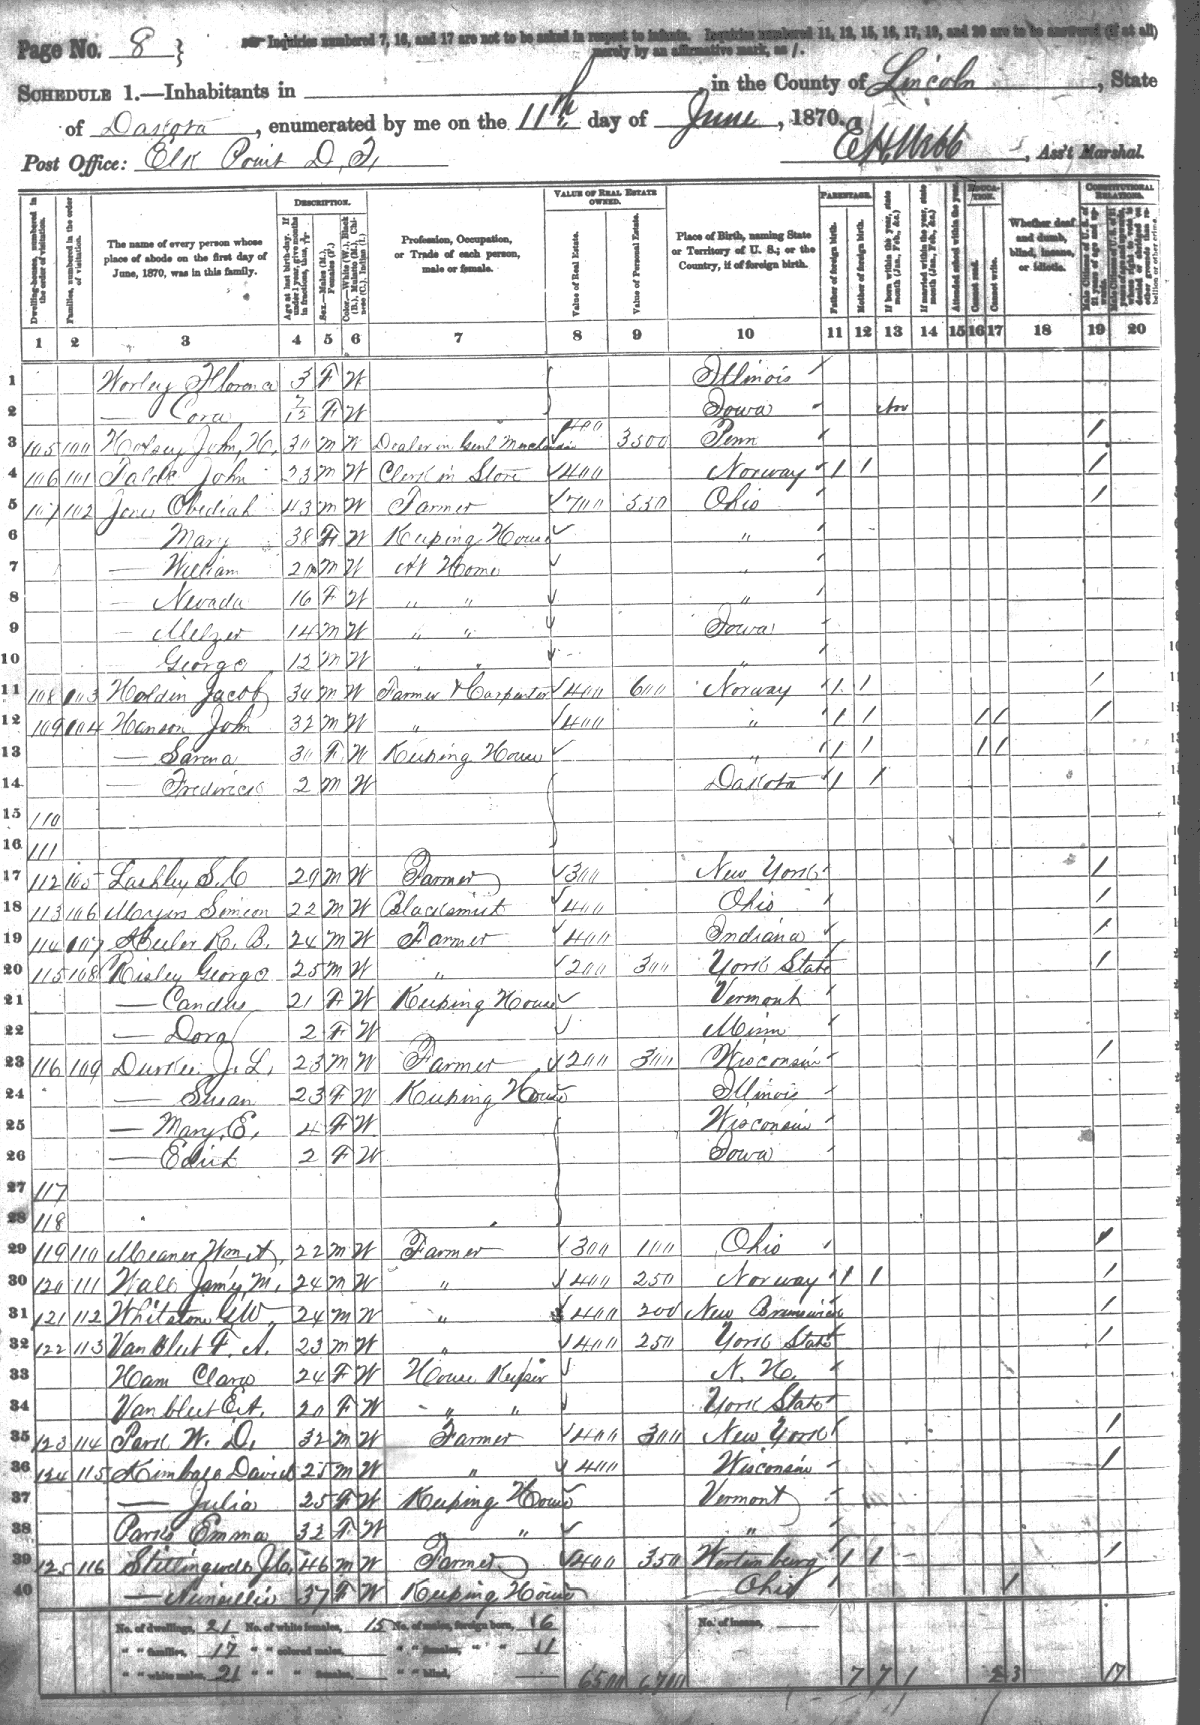 Page No. 8 }
Inquiries numbered 7, 16, and 17 are not to be asked in respect to infants. Inquiries numbered 11, 12, 15, 16, 17, 19, and 20 are to be answered (if at all)
merely by an affirmative mark, as /.
SCHEDULE 1.—Inhabitants in , in the County of Lincoln, State
of Dakota, enumerated by me on the 11th day of June, 1870.
Post Office: Elk Point D. T. E H Webb, Ass't Marshal.
DESCRIPTION. VALUE OF REAL ESTATE OWNED. PARENTAGE. EDUCATION. CONSTITUTIONAL RELATIONS.
Dwelling-houses, numbered in the order of visitation.
Families, numbered in the order of visitation.
The name of every person whose place of abode on the first day of June, 1870, was in this family.
Age at last birth-day. If under 1 year, give months in fractions, thus,
Sex.—Males (M.), Females (F.)
Color.—White (W.), Black (B.), Mulatto (M.), Chinese (C.), Indian (I.)
Profession, Occupation, or Trade of each person, male or female.
Value of Real Estate.
Value of Personal Estate.
Place of Birth, naming State or Territory of U. S.; or the Country, if of foreign birth.
Father of foreign birth.
Mother of foreign birth.
If born within the year, state month (Jan., Feb., &c.)
If married within the year, state month (Jan., Feb., &c.)
Attended school within the year.
Cannot read.
Cannot write.
Whether deaf and dumb, blind, insane, or idiotic.
1 2 3 4 5 6 7 8 9 10 11 12 13 14 15 16 17 18 19 20
1 Worley Florence 3 F W Illinois
2 — Cora 7/12 F W Iowa Nov
3 105 100 John H. 30 M W Dealer in Genl 400 3500 Penn /
4 106 101 John 23 M W Clerk in Store 400 Norway / / /
5 107 102 Jones Obediah 43 M W Farmer 700 550 Ohio /
6 — Mary 38 F W Keeping House "
7 — William 20 M W At Home "
8 — Nevada 16 F W " " "
9 — Melzer 14 M W " " Iowa
10 — George 12 M W " " "
11 108 103 Holdin Jacob 34 M W Farmer & Carpenter 400 600 Norway / / /
12 109 104 Hanson John 32 M W " 400 " / / / / /
13 — Sarena 30 F W Keeping House " / / / /
14 — Frederick 2 M W Dakota / /
15 110
16 111
17 112 105 Lashley S. C 29 M W Farmer 300 New York /
18 113 106 Myers Simeon 22 M W Blacksmith 400 Ohio /
19 114 107 R. B. 24 M W Farmer 400 Indiana /
20 115 108 Risley George 25 M W " 200 300 York State /
21 — Candus 21 F W Keeping House Vermont
22 — Dora 2 F W Minn
23 116 109 Durkee J. L. 23 M W Farmer 200 300 Wisconsin /
24 — Susan 23 F W Keeping House Illinois
25 — Mary, E. 4 F W Wisconsin
26 — Edith 2 F W Iowa
27 117
28 118
29 119 110 Meaner Wm A. 22 M W Farmer 300 100 Ohio /
30 120 111 M. 24 M W " 400 250 Norway / / /
31 121 112 Whitstone G W 24 M W " 400 200 New Brunswick /
32 122 113 Van Vleet F. A. 23 M W " 400 250 York State /
33 Ham Clara 24 F W House Keeper N. H.
34 Van Vleet E. A. 20 F W " " York State
35 123 114 Park W. D. 32 M W Farmer 400 300 New York /
36 124 115 Kimball David 25 M W " 400 Wisconsin /
37 — Julia 25 F W Keeping House Vermont
38 Parks Emma 32 F W " " "
39 125 116 46 M W Farmer 400 350 Wertemburg / / /
40 — 37 F W Keeping House Ohio /
No. of dwellings, 21 No. of white females, 15 No. of males, foreign born, 16 No. of insane,
" " families, 17 " " colored males, " " females, " " 11
" " white males, 21 " " " females, " " blind, 6500 6700 7 7 1 2 3 17